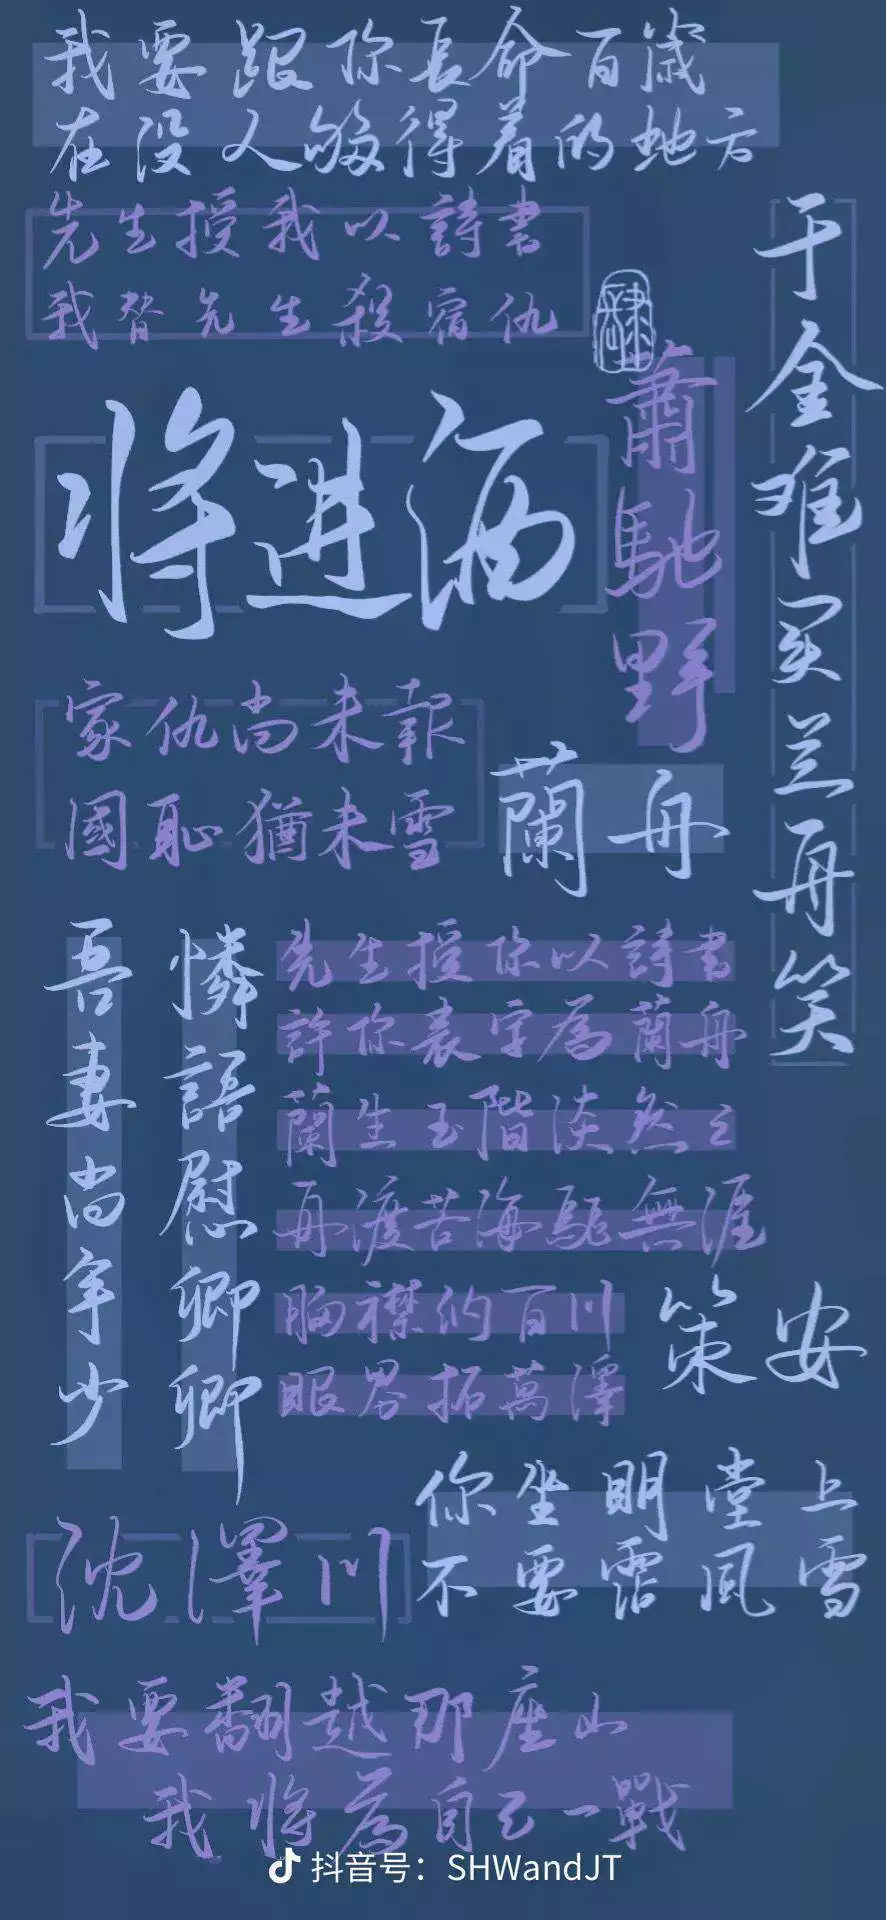 我要跟你長命百歲
在没人够得着的地方
先生授我以詩書
我替先生殺宿仇
千金难买兰舟笑
肆
蕭馳野
将进酒
家仇尚未報
國恥猶未雪
蘭舟
吾妻尚年少
憐語慰卿卿
先生授你以詩書
許你表字為蘭舟
蘭生玉階淡然之
再渡苦海駈無涯
胸襟納百川
眼界拓萬澤
策安
你坐明堂上
不要霑風雪
沈澤川
我要翻越那座山
我將為自己一戰
抖音号：SHWandJT